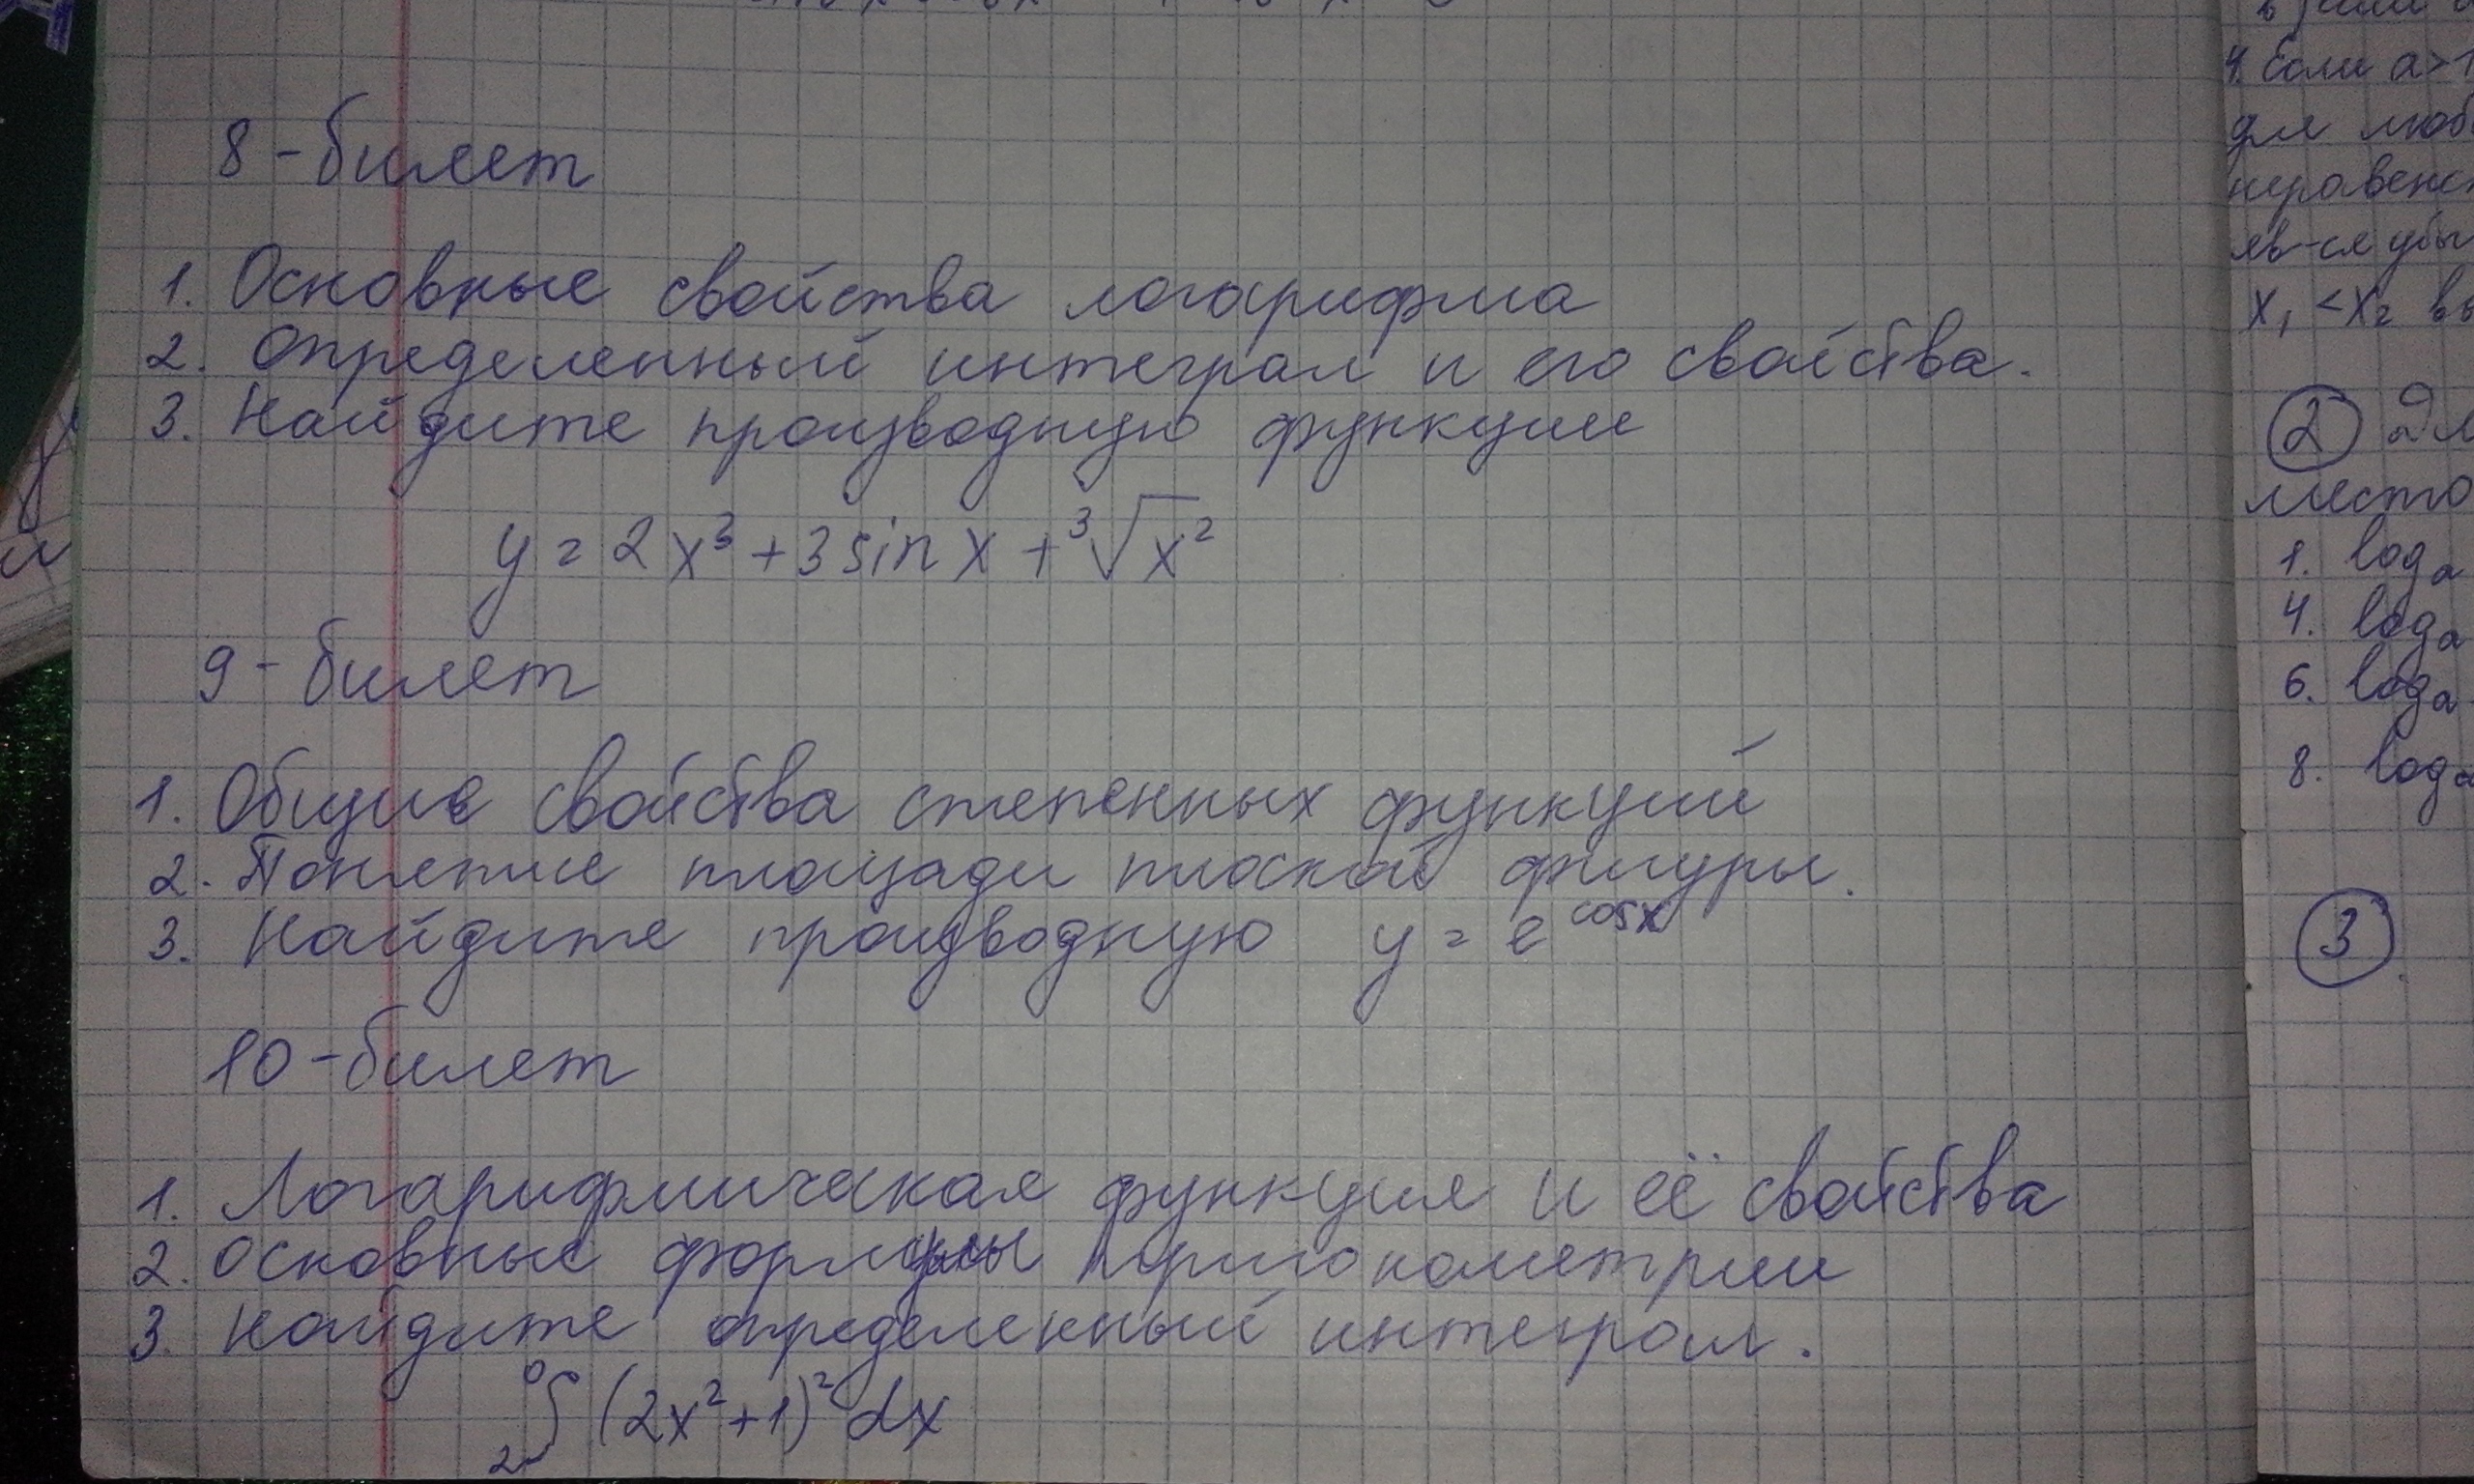 8-билет
1. Основные свойства логарифма
2. Определенный интеграл и его свойства.
3. Найдите производную функции
y = 2x³ + 3 sin x + ³√x²
9-билет
1. Общие свойства степенных функций
2. Понятие площади плоской фигуры.
3. Найдите производную y = e^cosx
10-билет
1. Логарифмическая функция и её свойства
2. Основные формулы тригонометрии
3. Найдите определенный интеграл.
₂∫⁰ (2x²+1)² dx
4. Если a>1
для
x₁ <x₂
2
место
1. log a
4. log a
6. log a
8. log a
3